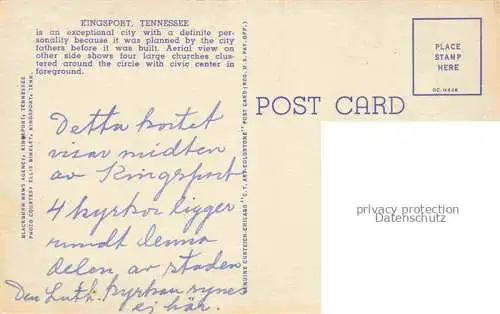 KINGSPORT, TENNESSEE
is an exceptional city with a definite per-
sonality because it was planned by the city
fathers before it was built. Aerial view on
other side shows four large churches clus-
tered around the circle with civic center in
foreground.
BLACKBURN NEWS AGENCY, KINGSPORT, TENNESSEE
PHOTO COURTESY ELLIS BINKLEY, KINGSPORT, TENN.
Detta kortet
visar midten
av Kingsport
4 kyrkor ligger
rundt denna
delen av staden
Den Luth. kyrkan synes
ej här.
GENUINE CURTEICH-CHICAGO "C.T. ART-COLORTONE" POST CARD (REG. U.S. PAT. OFF.)
POST CARD
PLACE
STAMP
HERE
OC-H448
privacy protection
Datenschutz